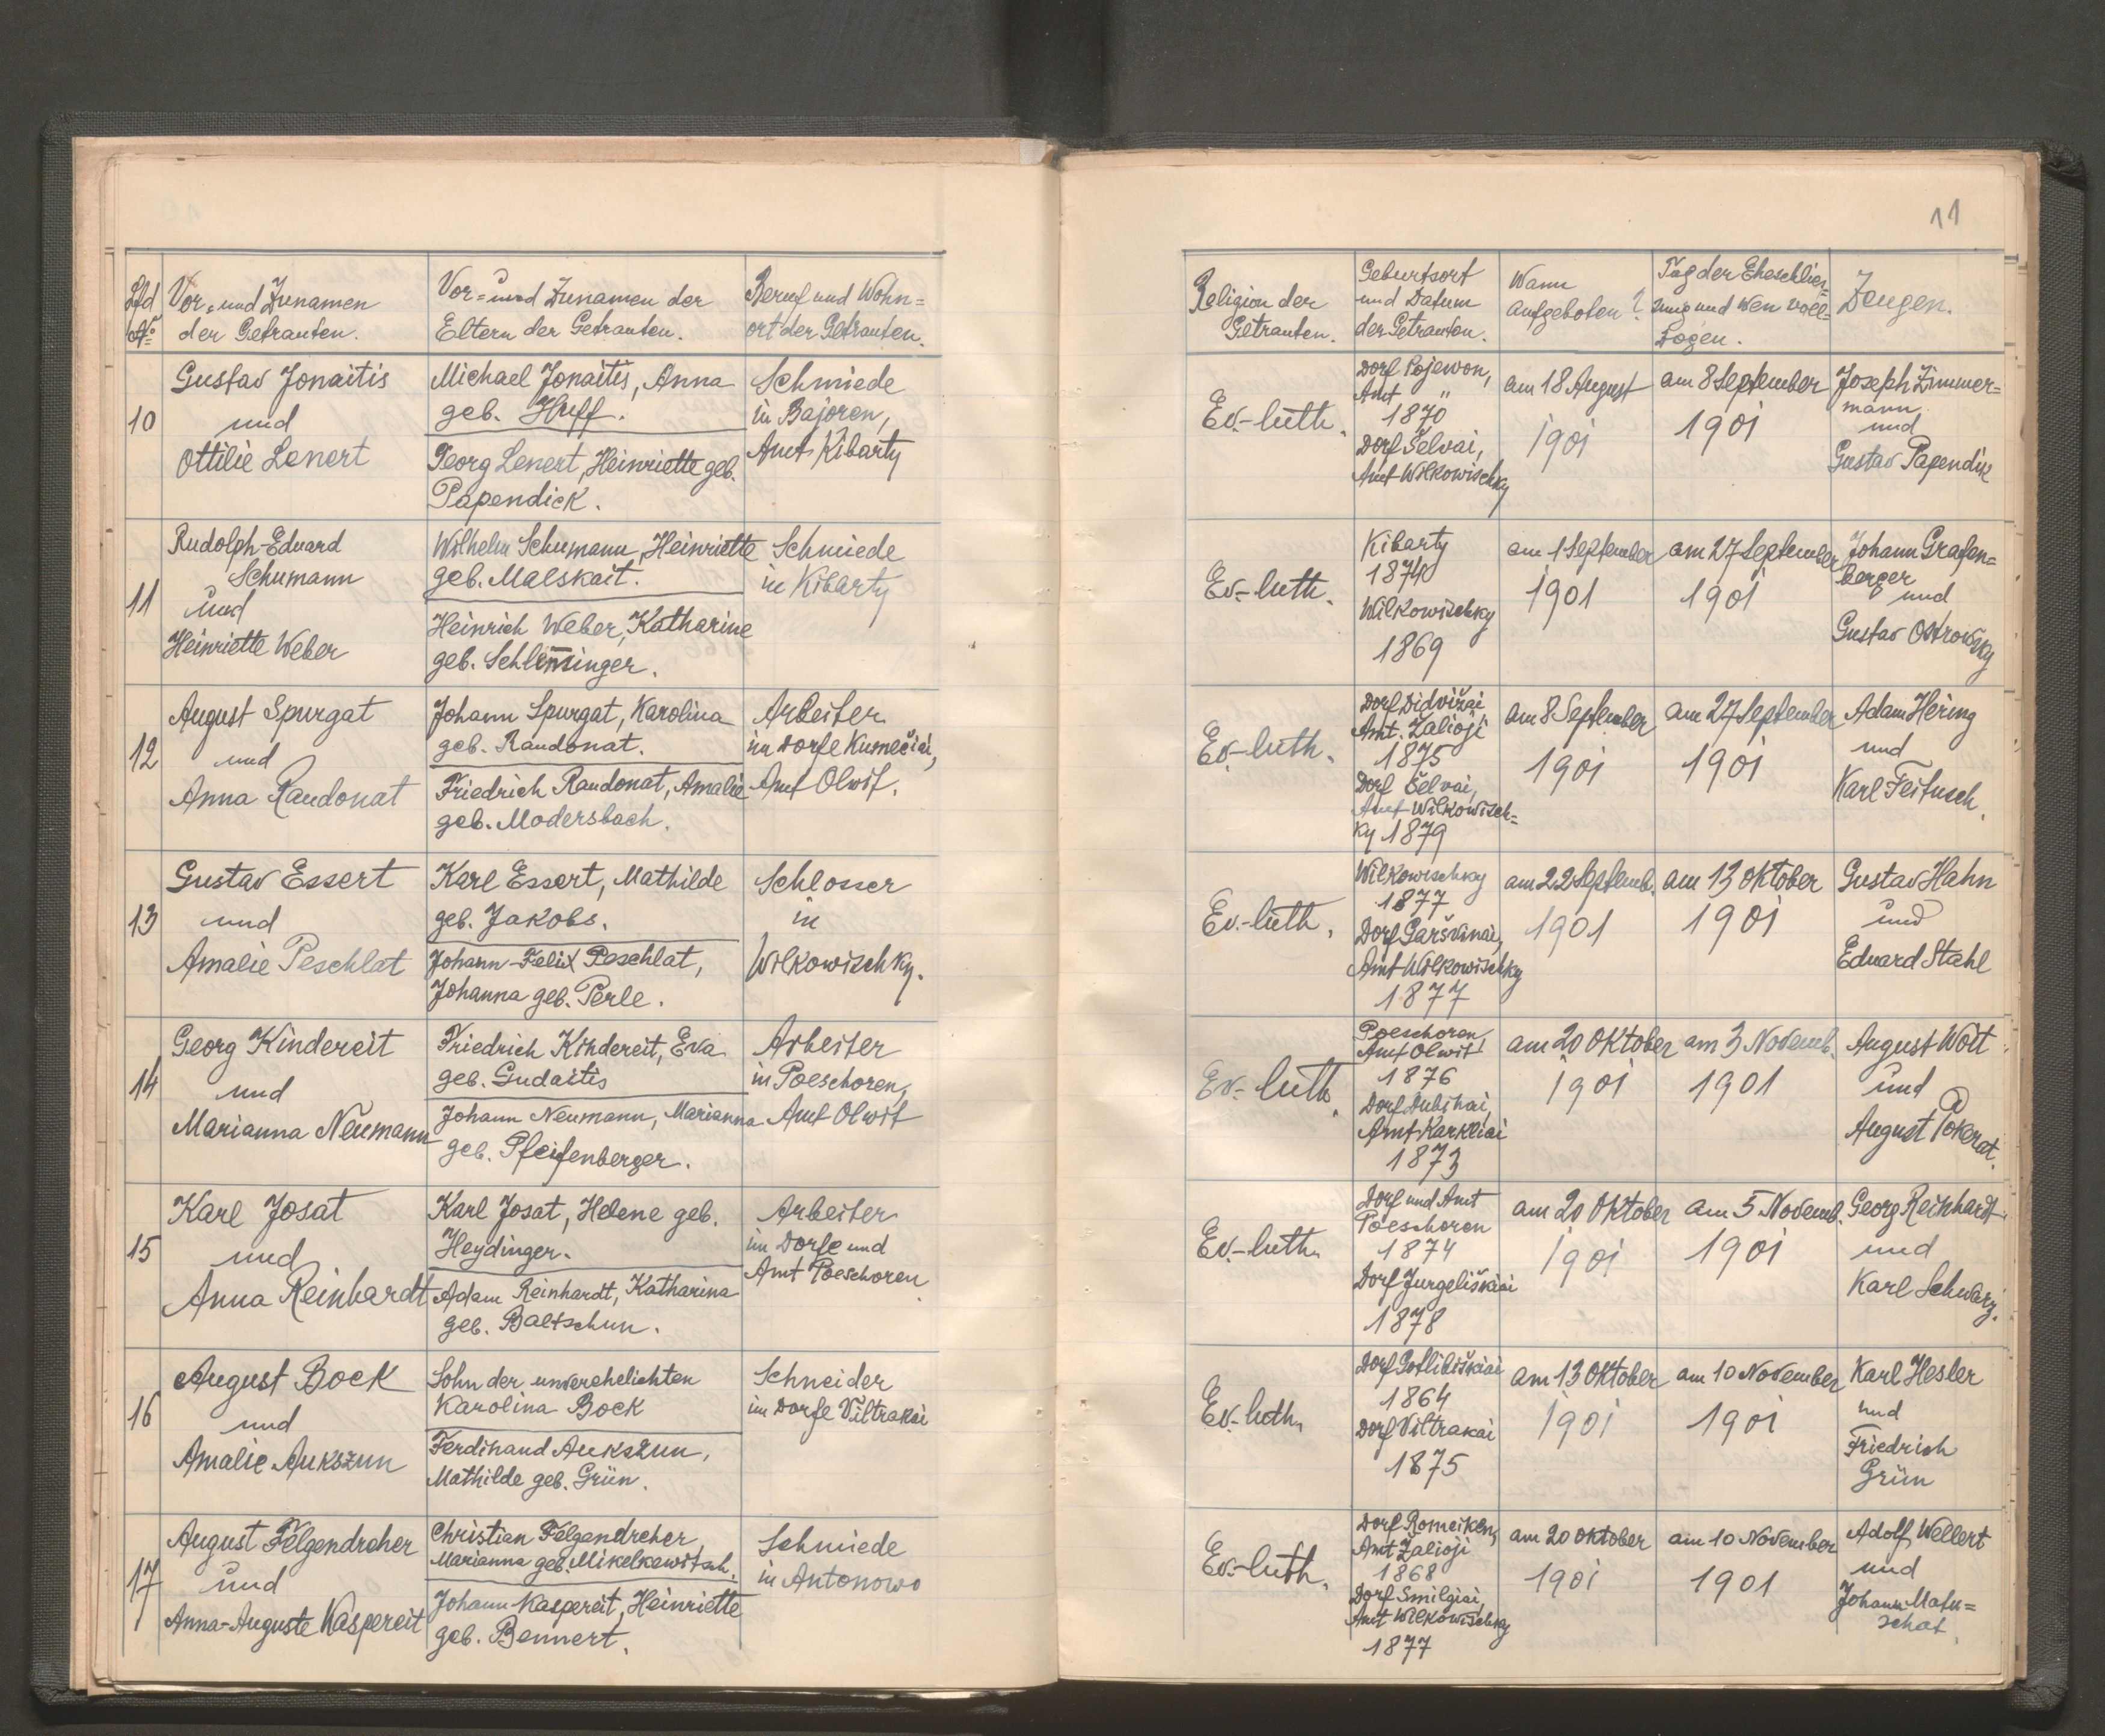 11
Lfd № Vor- und Zunamen der Getrauten.
Vor- und Zunamen der Eltern der Getrauten.
Beruf und Wohn=
ort der Getrauten.
Religion der
Getrauten.
Geburtsort
und Datum
der Getrauten.
Wann
aufgeboten?
Tag der Eheschlies=
sung und wen voll=
zogen.
Zeugen.
10
Gustav Jonaitis
und
Ottilie Lenert
Michael Jonaitis, Anna
geb. Huff.
Georg Lenert, Heinriette geb.
Papendick.
Schmiede
in Bajoren,
Amt Kibarty
Ev.-luth.
Dorf Pojewon,
Amt "
1870
Dorf Šelvai,
Amt Wilkowischky
am 18 August
1901
am 8 September
1901
Joseph Zimmer=
mann
und
Gustav Papendik
11
Rudolph-Eduard
Schumann
und
Heinriette Weber
Wilhelm Schumann, Heinriette
geb. Malskait.
Heinrich Weber, Katharine
geb. Schlem̅inger.
Schmiede
in Kibarty
Ev.-luth.
Kibarty
1874
Wilkowischky
1869
am 1 September
1901
am 27 September
1901
Johann Grafen=
berger
und
Gustav Ostrowsky
12
August Spurgat
und
Anna Raudonat
Johann Spurgat, Karolina
geb. Raudonat.
Friedrich Raudonat, Amalie
geb. Modersbach.
Arbeiter
im Dorfe Kumečiai,
Amt Olwit.
Ev.-luth.
Dorf Didvižai,
Amt. Žalioji
1875
Dorf Šelvai,
Amt Wilkowisch=
ky 1879
am 8 September
1901
am 27 September
1901
Adam Hering
und
Karl Feitusch.
13
Gustav Essert
und
Amalie Peschlat
Karl Essert, Mathilde
geb. Jakobs.
Johann-Felix Peschlat,
Johanna geb. Perle.
Schlosser
in
Wilkowischky.
Ev.-luth.
Wilkowischky
1877
Dorf Garšvinai,
Amt Wilkowischky
1877
am 22 Septemb.
1901
am 13 Oktober
1901
Gustav Hahn
und
Eduard Stahl
14
Georg Kindereit
und
Marianna Neumann
Friedrich Kindereit, Eva
geb. Gudaitis
Johann Neumann, Marianna
geb. Pfeifenberger.
Arbeiter
in Poeschoren,
Amt Olwit
Ev.-luth.
Poeschoren,
Amt Olwit
1876
Dorf Aubikai,
Amt Karkliai
1873
am 20 Oktober
1901
am 3 Novemb.
1901
August Woit
und
August Pokerat.
15
Karl Josat
und
Anna Reinhardt
Karl Josat, Helene geb.
Heydinger.
Adam Reinhardt, Katharina
geb. Baltschun.
Arbeiter
im Dorfe und
Amt Poeschoren
Ev.-luth.
Dorf und Amt
Poeschoren
1874
Dorf Jurgeliškiai
1878
am 20 Oktober
1901
am 5 Novemb.
1901
Georg Reinhardt
und
Karl Schwarz.
16
August Bock
und
Amalie Aukszun
Sohn der unverehelichten
Karolina Bock
Ferdinand Aukszun,
Mathilde geb. Grün.
Schneider
im Dorfe Viltrakai
Ev.-luth.
Dorf Gotlibiškiai
1864
Dorf Viltrakai
1875
am 13 Oktober
1901
am 10 November
1901
Karl Hesler
und
Friedrich
Grün
17
August Felgendreher
und
Anna-Auguste Kaspereit
Christian Felgendreher
Marianna geb. Mikelkewitsch.
Johann Kaspereit, Heinriette
geb. Bennert.
Schmiede
in Antonowo
Ev.-luth.
Dorf Romeiken,
Amt Žalioji
1868
Dorf Smilgiai,
Amt Wilkowischky
1877
am 20 Oktober
1901
am 10 November
1901
Adolf Wellert
und
Johann Matu=
schat.